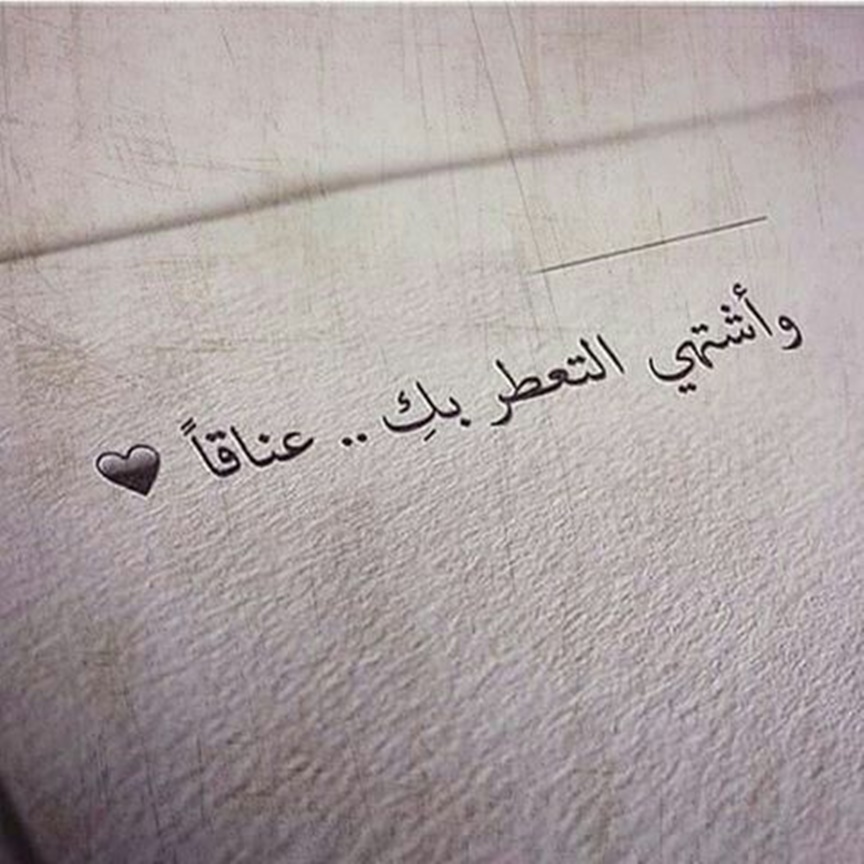 وأشتهي التعطر بكِ .. عناقاً ♥